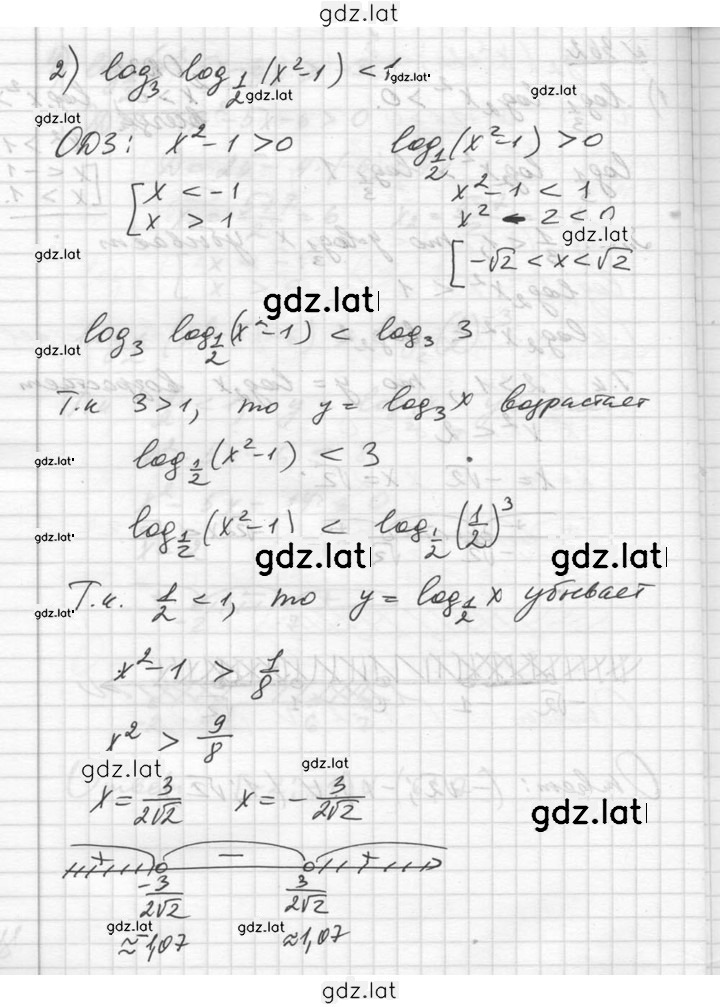 gdz.lat
2) log₃ log_{1/2} (x²-1) < 1
gdz.lat
gdz.lat
gdz.lat
gdz.lat
ОДЗ: x²-1 > 0
log_{1/2} (x²-1) > 0
[ x < -1
x > 1
x²-1 < 1
x² - 2 < 0
gdz.lat
gdz.lat
[ -√2 < x < √2
gdz.lat
log₃ log_{1/2} (x²-1) < log₃ 3
gdz.lat
Т.к 3>1, то y = log₃x возрастает
log_{1/2} (x²-1) < 3
gdz.lat
log_{1/2} (x²-1) < log_{1/2} (1/2)³
gdz.lat
gdz.lat
gdz.lat
Т.к. 1/2 < 1, то y = log_{1/2} x убывает
gdz.lat
x²-1 > 1/8
x² > 9/8
gdz.lat
gdz.lat
x = 3/2√2 x = - 3/2√2
gdz.lat
+ − +
-3/2√2 3/2√2
gdz.lat
gdz.lat
≈ -1,07 ≈ 1,07
gdz.lat